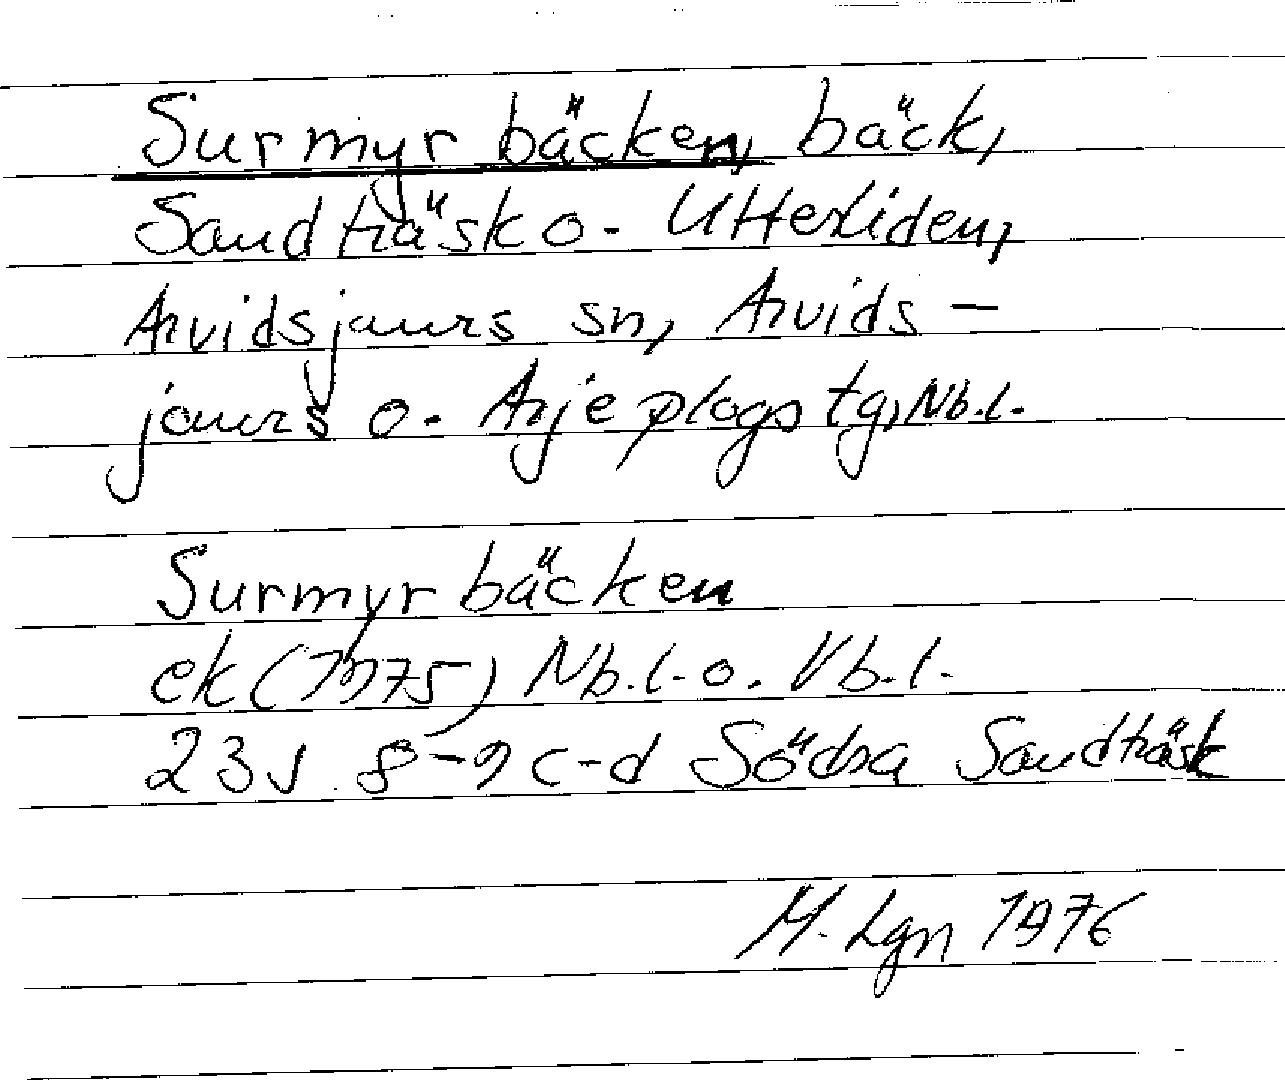 Surmyrbäcken, bäck,
Sandträsk o. Utterliden,
Arvidsjaurs sn, Arvids-
jaurs o. Arjeplogs tg, Nb.l.
Surmyrbäcken
ek (1975) Nb.l. o. Vb.l.
23J 8-9 c-d Södra Sandträsk
M. Lgn 1976